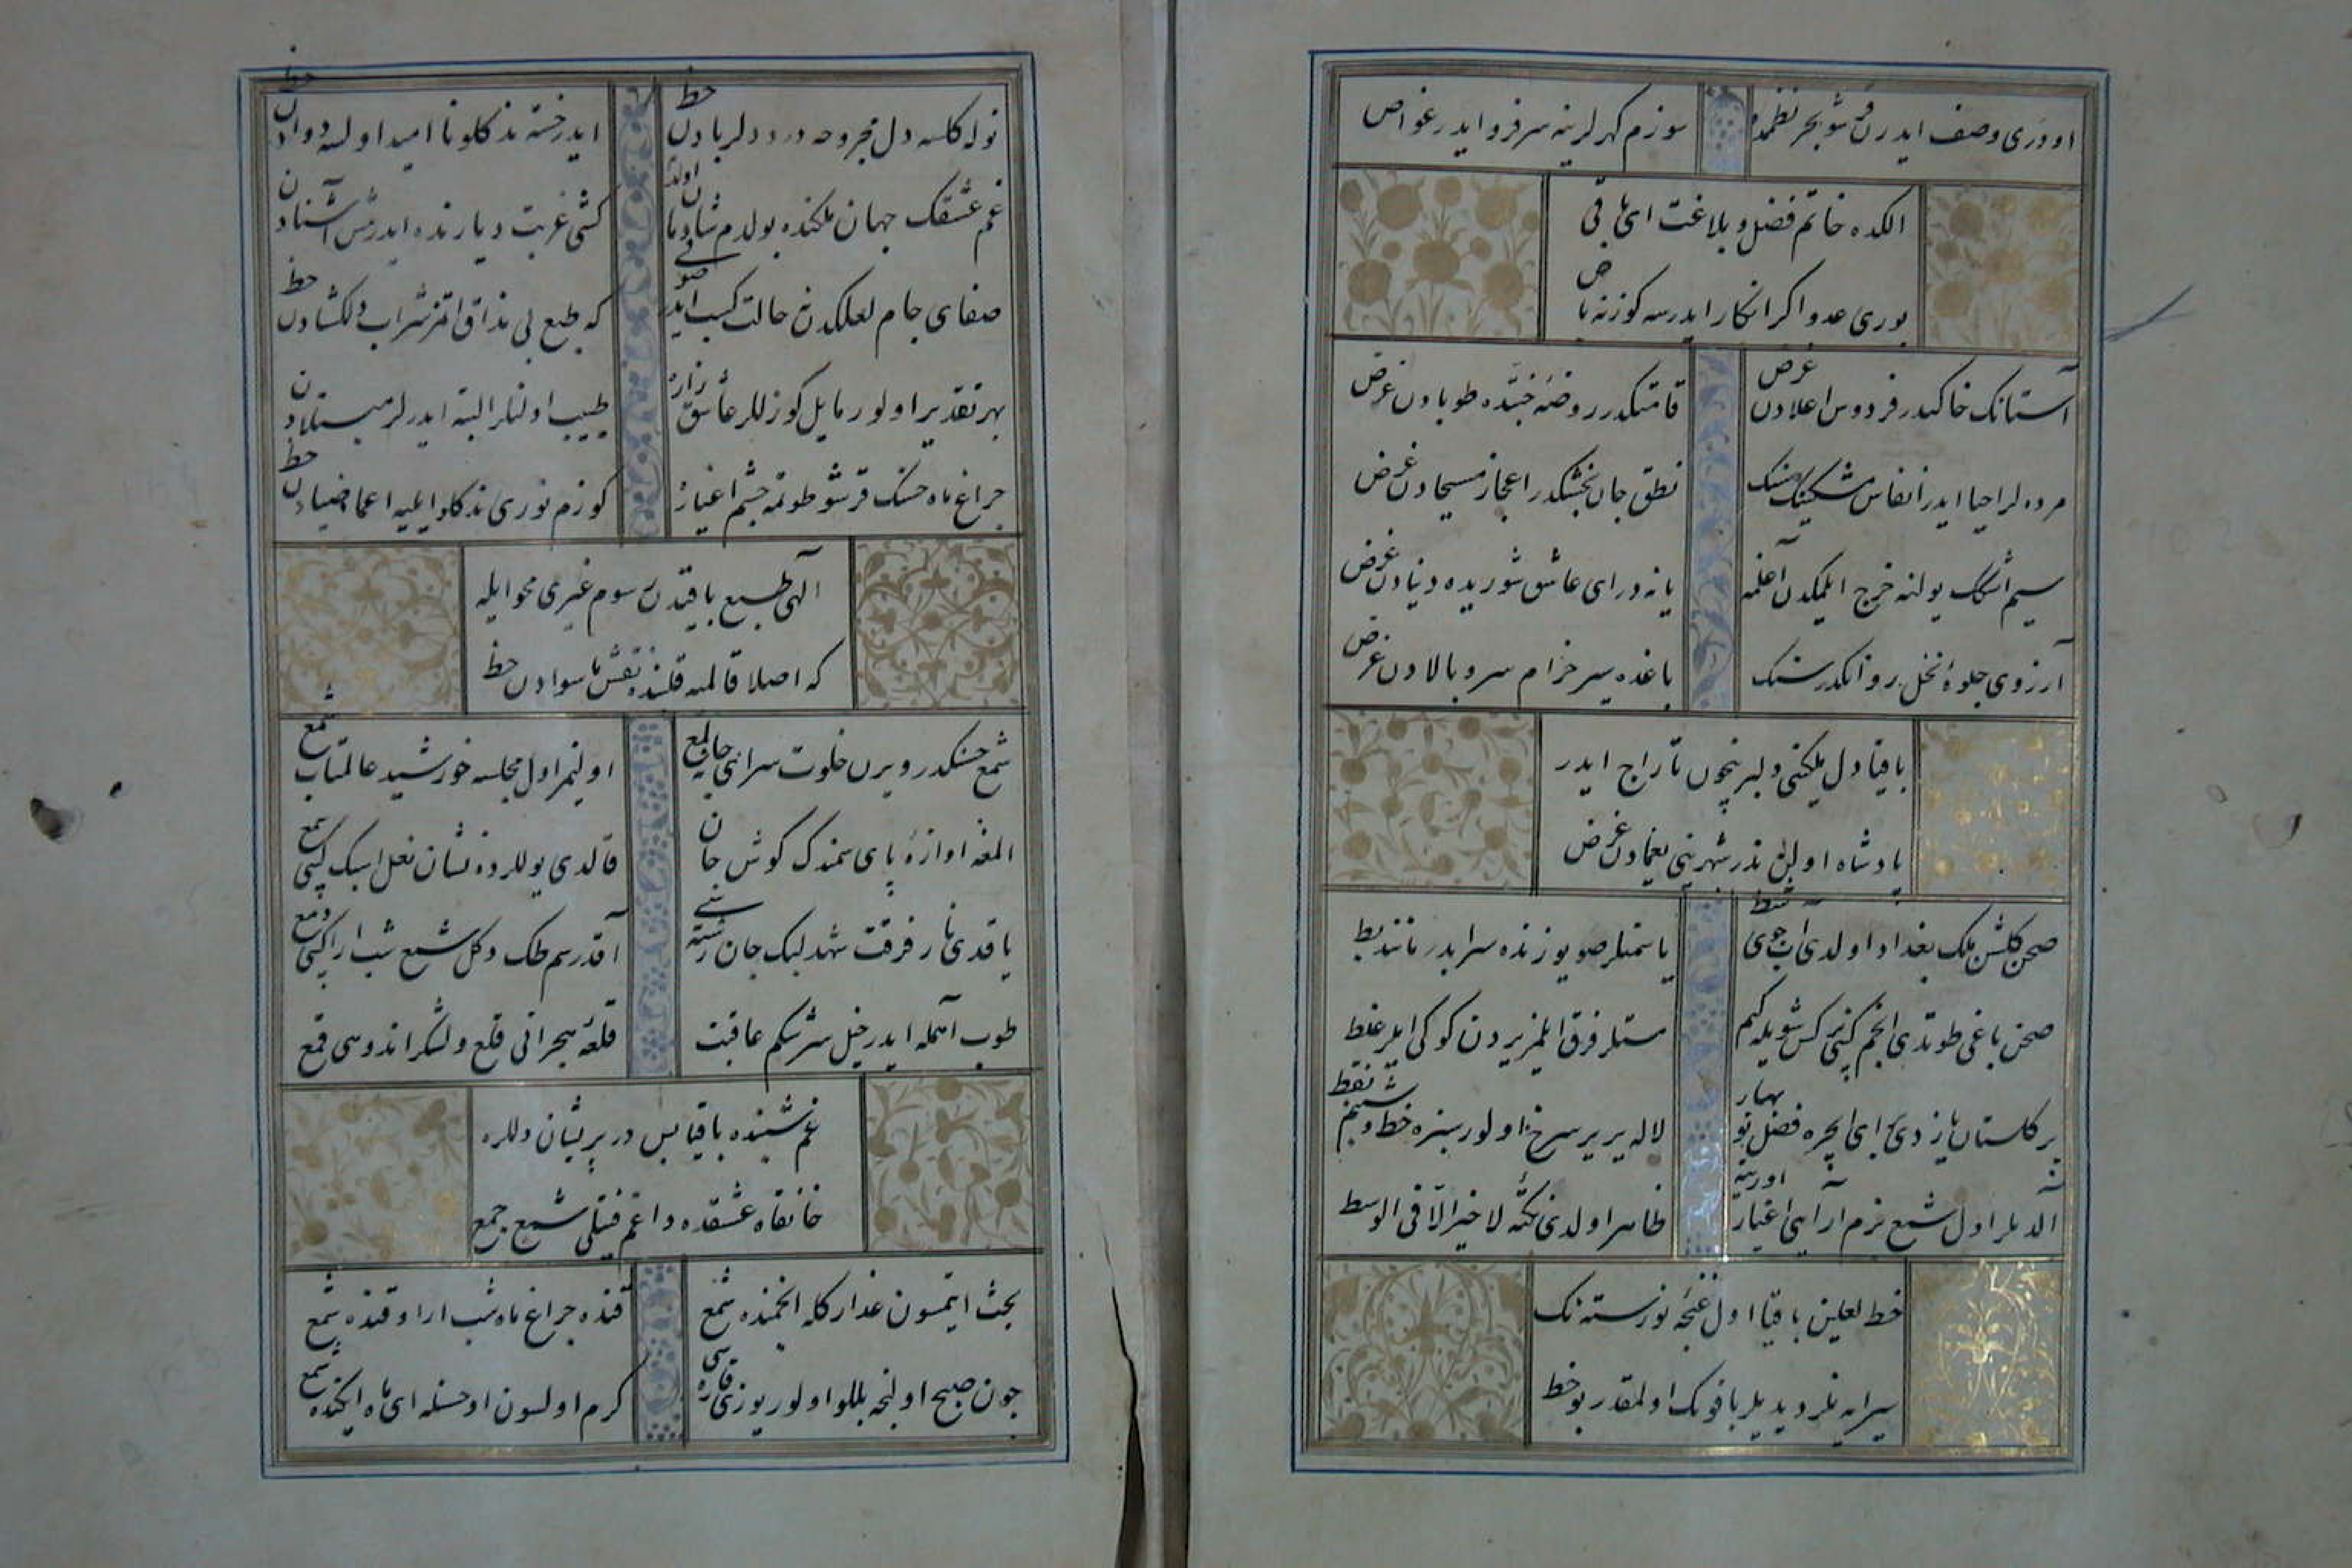 اودری وصف ایدرن شو بحر نظمده سوزم کهرلرینه سرفرو ایدر غواص
الکده خاتم فضل و بلاغت ای باقی
بوری عدو اکر انکار ایدرسه کوزنه باص
آستانک خاکیدر فردوس اعلادن غرض قامتکدر روضهٔ جنتده طوبادن غرض
مرده لر احیا ایدر انفاس مشکینک سنک نطق جان بخشکدر اعجاز مسیحادن غرض
سیم اشکک یولنه خرج ایلمکدن آغلمه یا نه در ای عاشق شوریده دنیادن غرض
آرزوی جلوهٔ نخل روانکدر سنک باغده سیر خرام سرو بالادن غرض
باقیا دل ملکنی دلبر نیچون تاراج ایدر
پادشاه اولن ندر شهرینی یغمادن غرض
صحن کلشن ملک بغداد اولدی آب جوی شط یاسمنلر صو یوزنده سرابدر مانند بط
صحن باغی طوتدی انجم کبی نرکس شویله کیم مستلر فرق ایلمز یردن کوکی ایلر غلط
بر کلستان یازدی ای ایچره فضل نو بهار لاله یر یر سرخ اولور سبزه خط و شبنم نقط
آلدیلر اول شمع بزم آرایی اغیار اورتیه ظاهر اولدی نکتهٔ لا خیر الا فی الوسط
خط لعلین باقیا اول غنچهٔ نورسته نک
سیرایدنلر دیدیلر یاقوتک اولمقدر بو خط
نوله کلسه دل مجروحه درد دلربادن حظ ایدر خسته ندکلو نا امید اولسه دوادن حظ
غم عشقک جهان ملکنده بولدم شادمان اولدم کشی غربت دیارنده ایدرمش آشنادن
صفای جام لعلکدن نه حالت کسب ایدر صوفی که طبع بی مذاق اتمز شراب دلکشادن حظ
بهر تقدیر اولور مایل کوزللر عاشق زاره طبیب اولنلر البته ایدرلر مبتلادن
چراغ ماه حسنک قرشو طوتمه چشم اغیاره کوزم نوری ندکلو ایلیه اعما ضیادن حظ
الهی طبع باقیدن سوم غیری محو ایله
که اصلا قالمیه قلبنده نقش ماسوادن حظ
شمع حسنکدر ویرن خلوت سرای جانه لمع اولیمز اول مجلسه خورشید عالمتاب شمع
المغه اوازهٔ پای سمندک کوش جان قالدی یوللرده نشان نعل اسبک کبی سمع
یاقدی نار فرقت شهد لبک جان رشته سنی آقدرسم طک دکل شمع شب ارا کبی دمع
طوب آهمله ایدر خیل سرشکم عاقبت قلعهٔ هجرانی قلع و لشکر اندوهی قمع
غم شبنده باقیا بس در پریشان دللره
خانقاه عشقده داغم فتیلی شمع جمع
بحث ایتمسون عذارکله انجمنده شمع قنده چراغ ماه شب ارا و قنده شمع
چون صبح اولنجه بللو اولور یوزی قاره سی کرم اولسون او حسنله ای ماه الکنده شمع